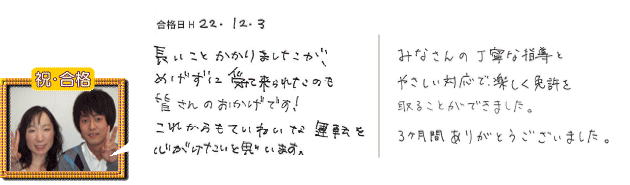 合格日 H 22. 12. 3
祝・合格
長いことかかりましたこが、
めげずに 來られたのも
皆さんのおかげです!
これからもていねいな 運転を
心がけたいと思います。
みなさんの丁寧な指導と
やさしい対応で楽しく免許を
取ることができました。
3ヶ月間ありがとうございました。